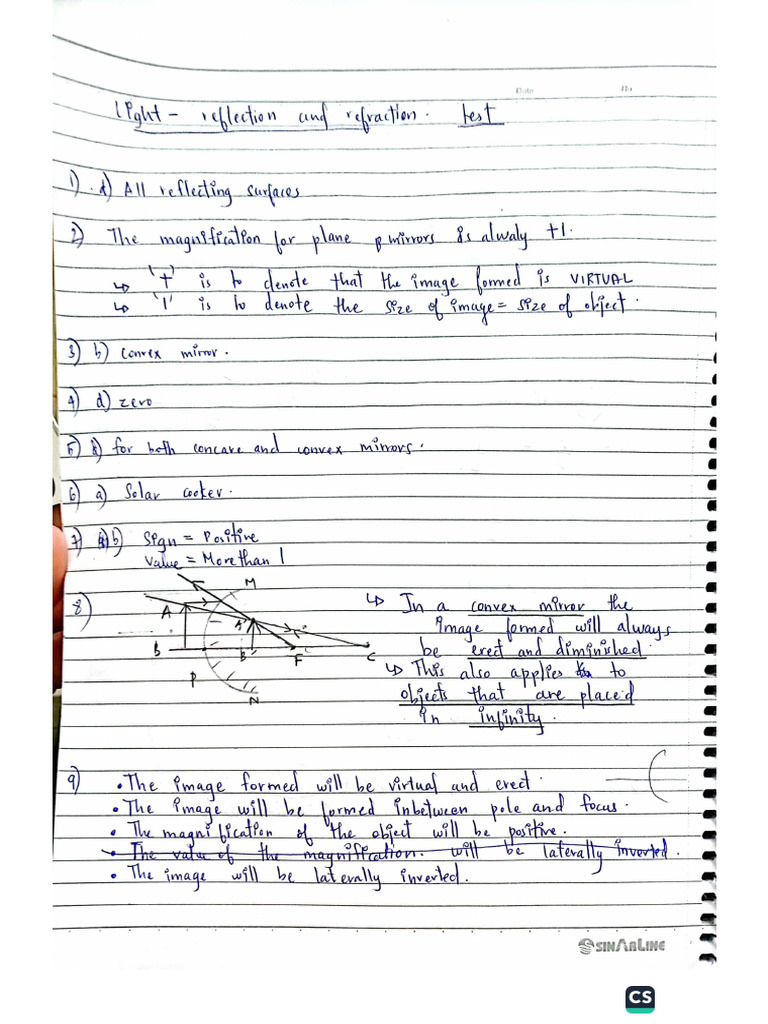 Date No
Light - reflection and refraction. test
1) d) All reflecting surfaces
2) The magnification for plane mirrors is alwaly +1.
↳ '+' is to denote that the image formed is VIRTUAL
↳ '1' is to denote the size of image = size of object.
3) b) convex mirror.
4) d) zero
5) for both concave and convex mirrors.
6) a) Solar cooker.
7) b) Sign = Positive
Value = More than 1
8)
M
A
A'
B
B'
F
C
P
N
↳ In a convex mirror the
image formed will always
be erect and diminished.
↳ This also applies to
objects that are placed
in infinity.
9) • The image formed will be virtual and erect.
• The image will be formed inbetween pole and focus.
• The magnification of the object will be positive.
• The value of the magnification. will be laterally inverted.
• The image will be laterally inverted.
SINARLINE
CS